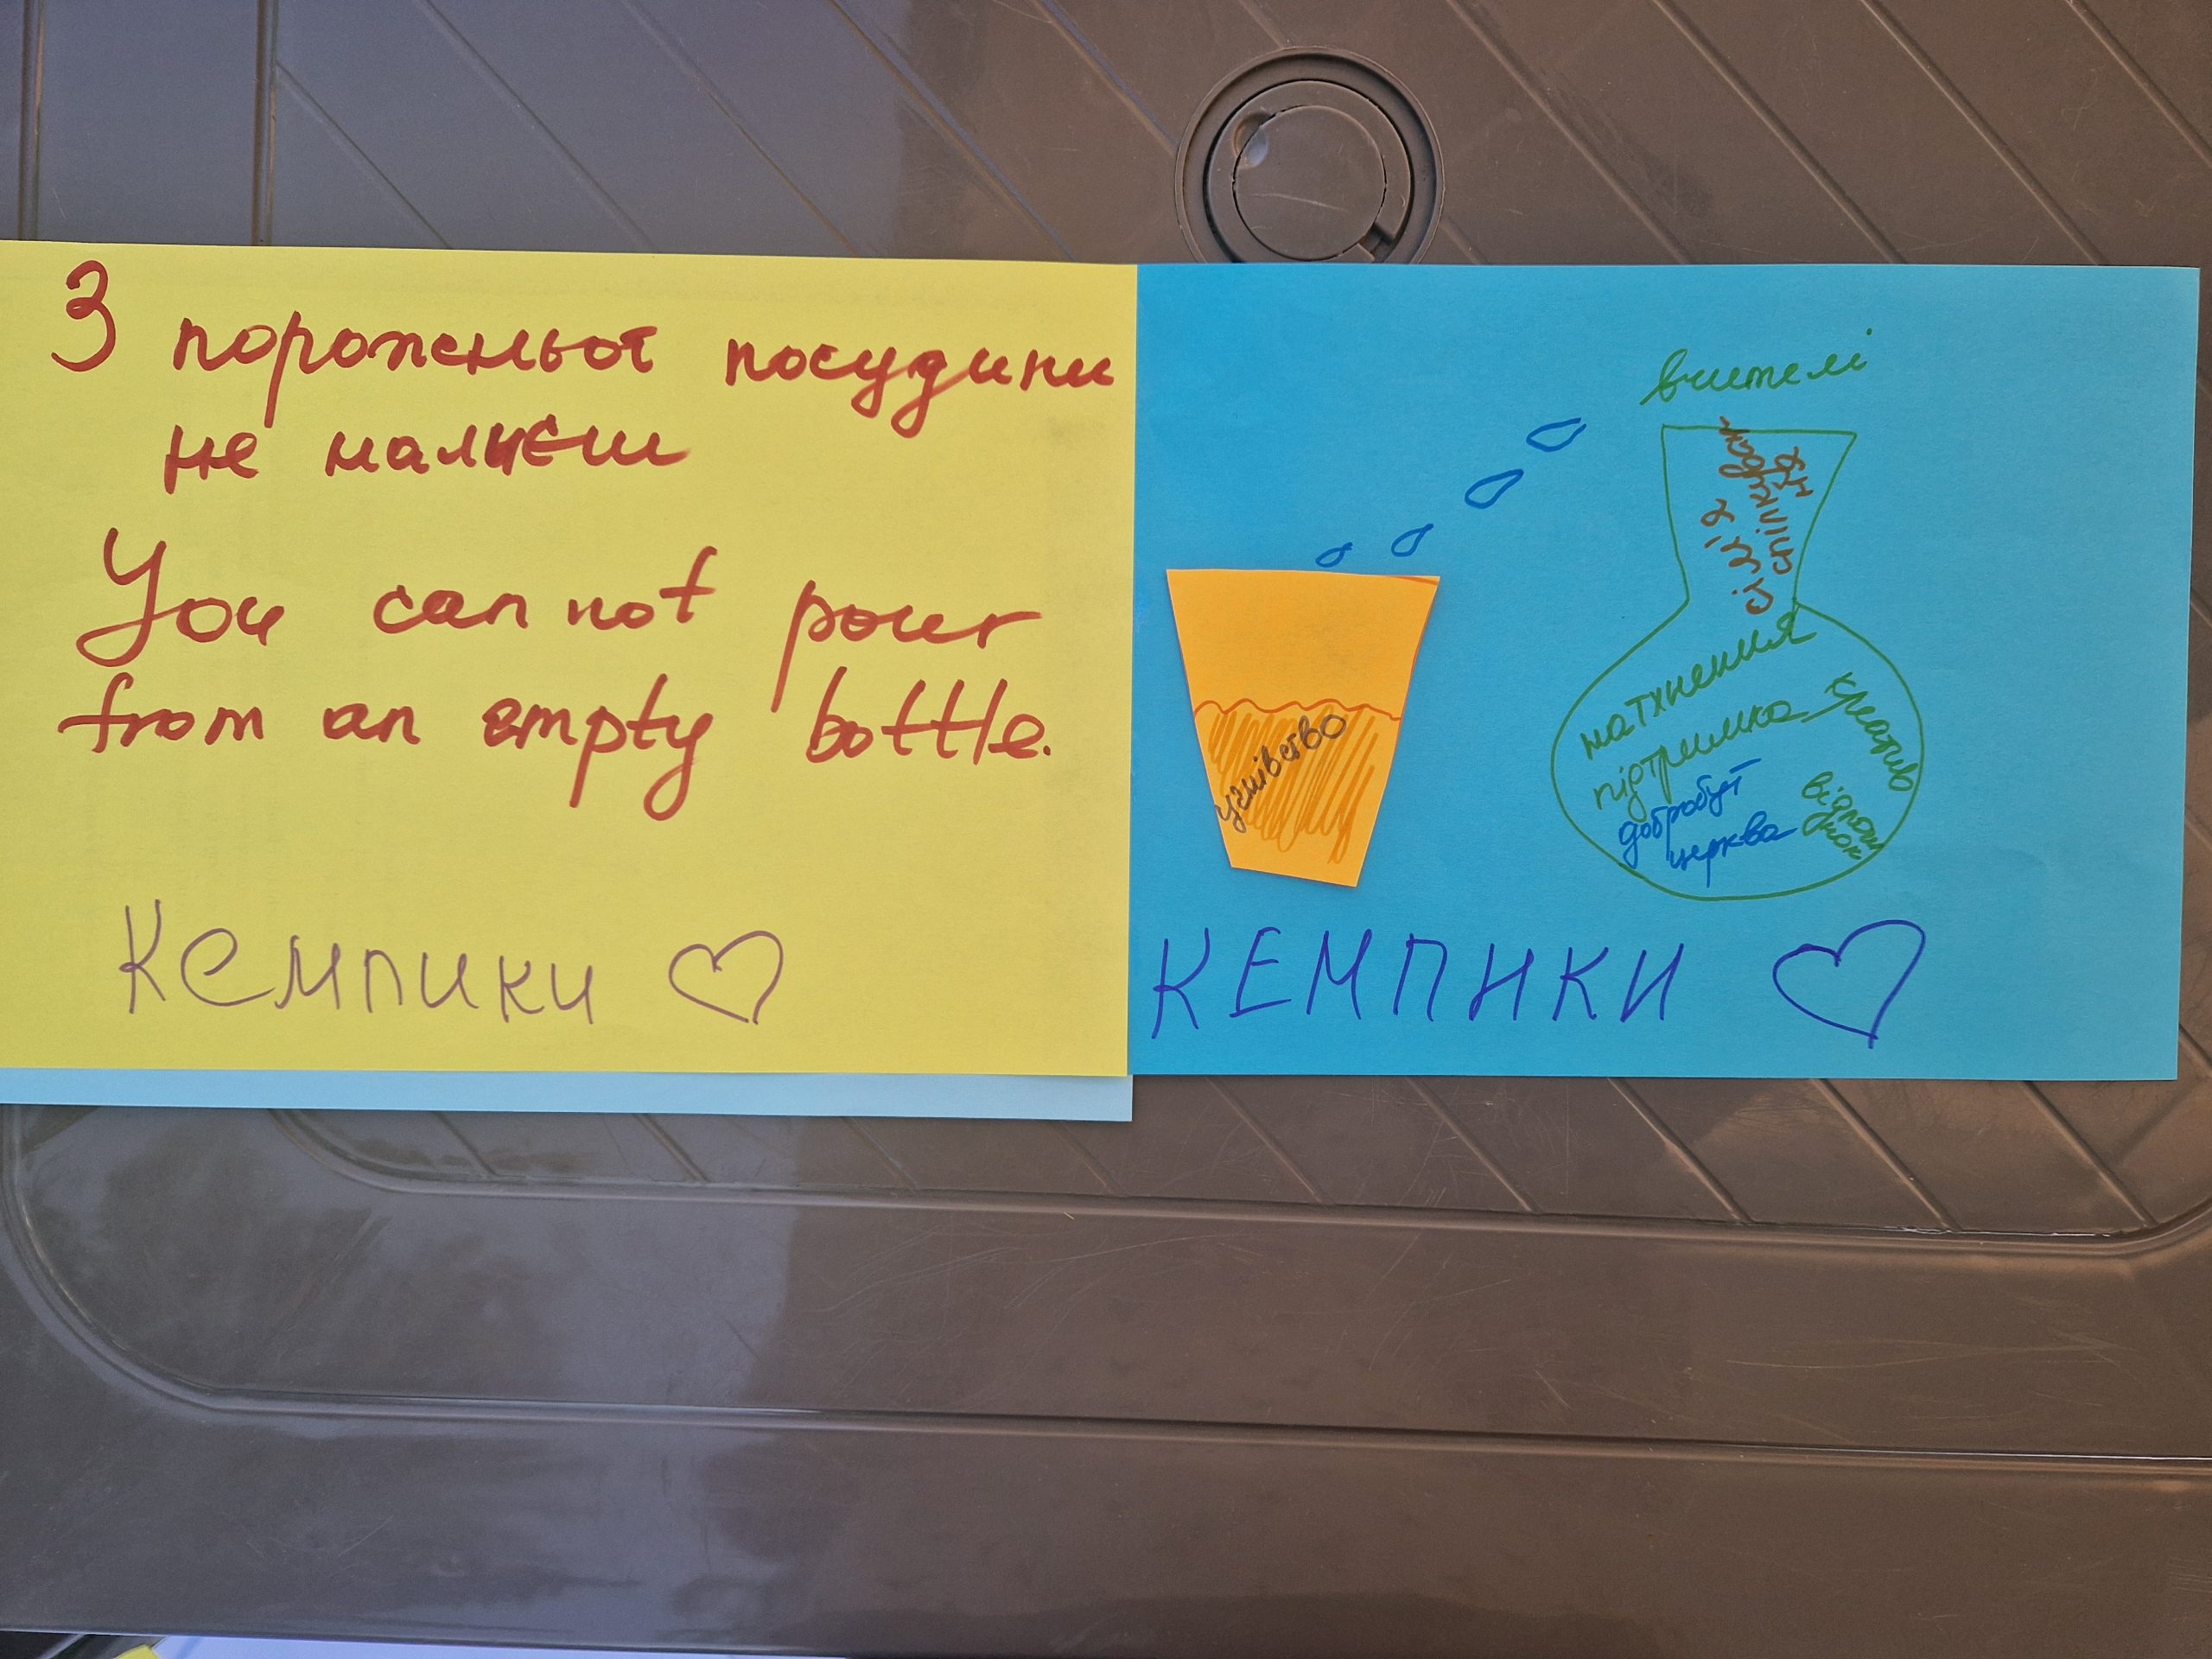 З порожньої посудини
не налиєш
You can not pour
from an empty bottle.
Кемпики
вчителі
сім'я
спілкування
натхнення
підтримка
креатив
добробут
церква
відпочинок
учнівство
КЕМПИКИ